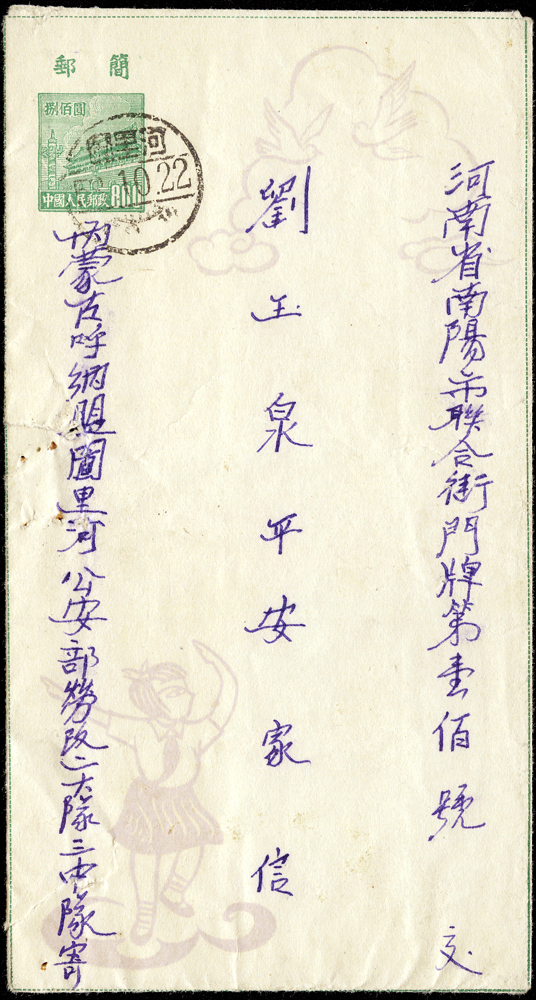 河南省南陽市聯合街門牌第壹佰號 交
劉玉泉平安家信
內蒙古呼納盟圖里河公安部勞改二大隊三中隊寄
郵簡
捌佰圓
中國人民郵政 800
圖里河
10.22